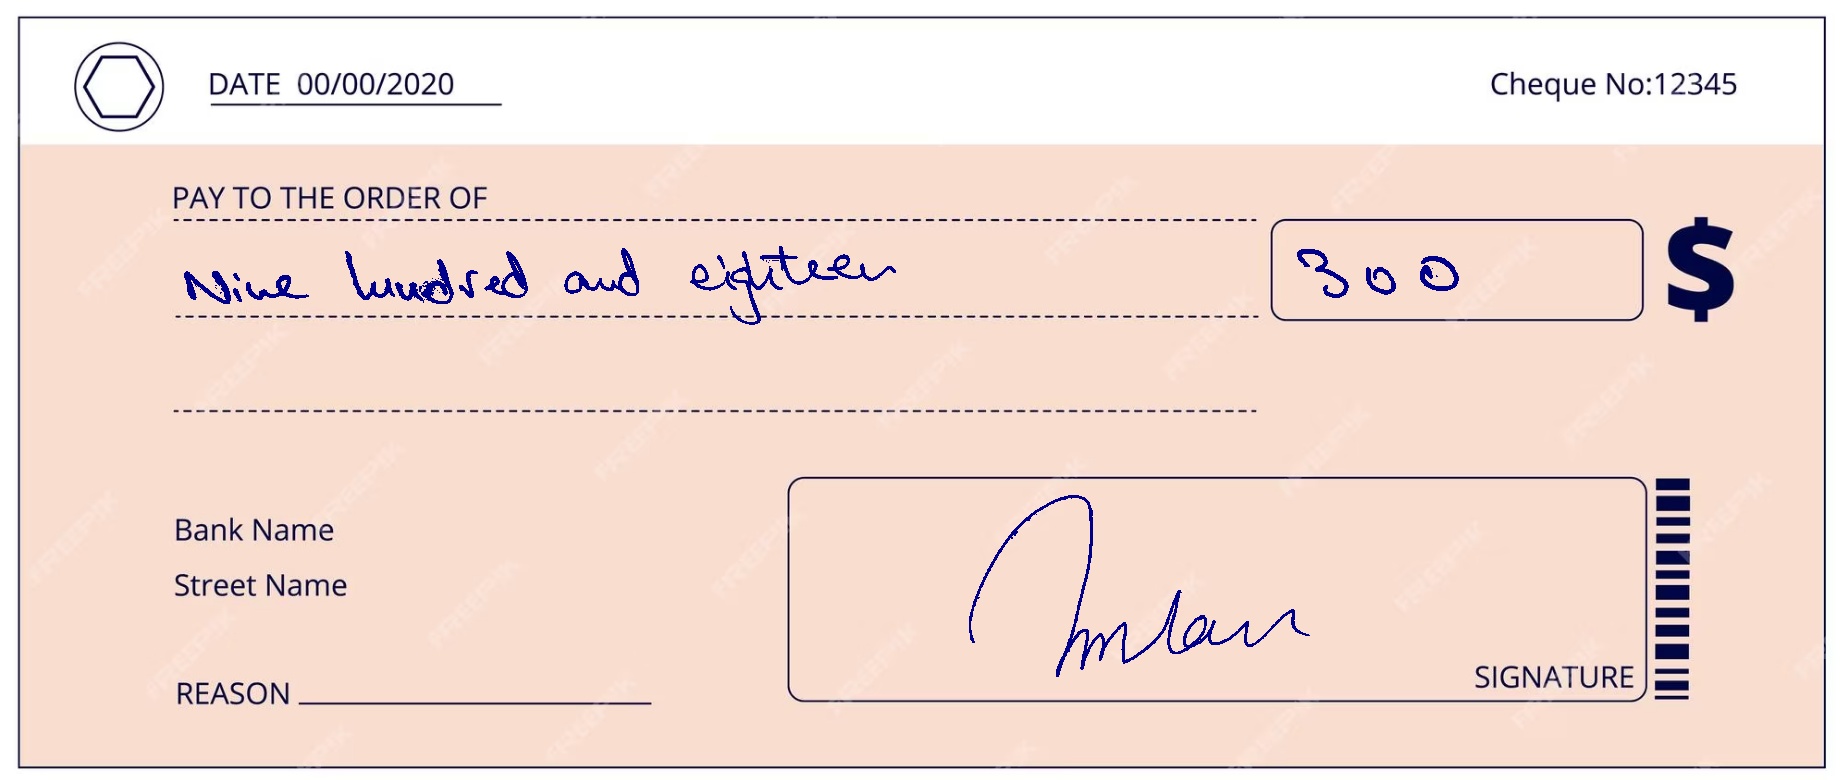 DATE 00/00/2020 Cheque No:12345
PAY TO THE ORDER OF
Nine hundred and eighteen 300 $
Bank Name
Street Name
SIGNATURE
REASON